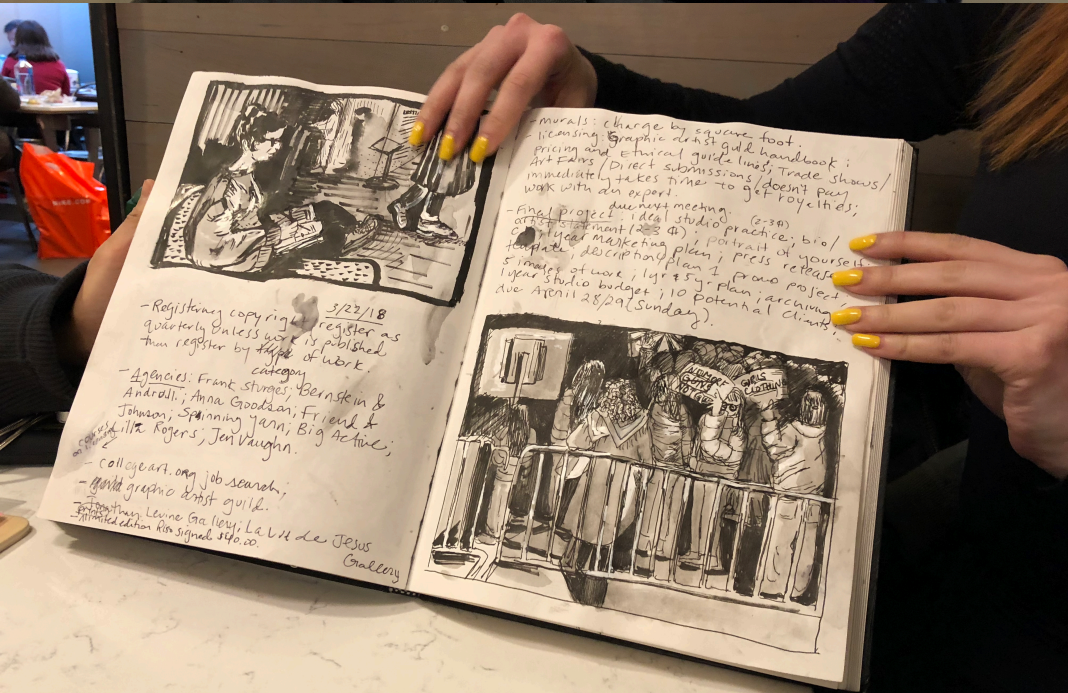 3/22/18
-Registering copyright register as
quarterly unless work is published
then register by type of work
category
-Agencies: Frank Sturges; Bernstein &
Andriulli; Anna Goodson; Friend &
Johnson; Spinning Yarn; Big Active;
Lilla Rogers; Jen Vaughn.
- collegeart.org job search;
- graphic artist guild.
Jonathan Levine Gallery; La Luz de Jesus
Gallery
-limited edition Riso signed $40.00.
-murals: charge by square foot.
- licensing: graphic artist guild handbook:
pricing and Ethical guidelines; Trade shows/
Art Fairs / Direct submissions/doesn't pay
immediately takes time to get royelties;
work with an expert.
due next meeting.
-Final project: ideal studio practice; bio/ (2-3 ¶)
artist statement (2-3 ¶). portrait of yourself;
1 year marketing plan; press release
template, description/plan 1 promo project,
5 images of work; 1yr & 5yr-plan; archiving
1 year studio budget; 10 potential clients.
due April 28/29 (Sunday).
GIRLS
CLOTHING